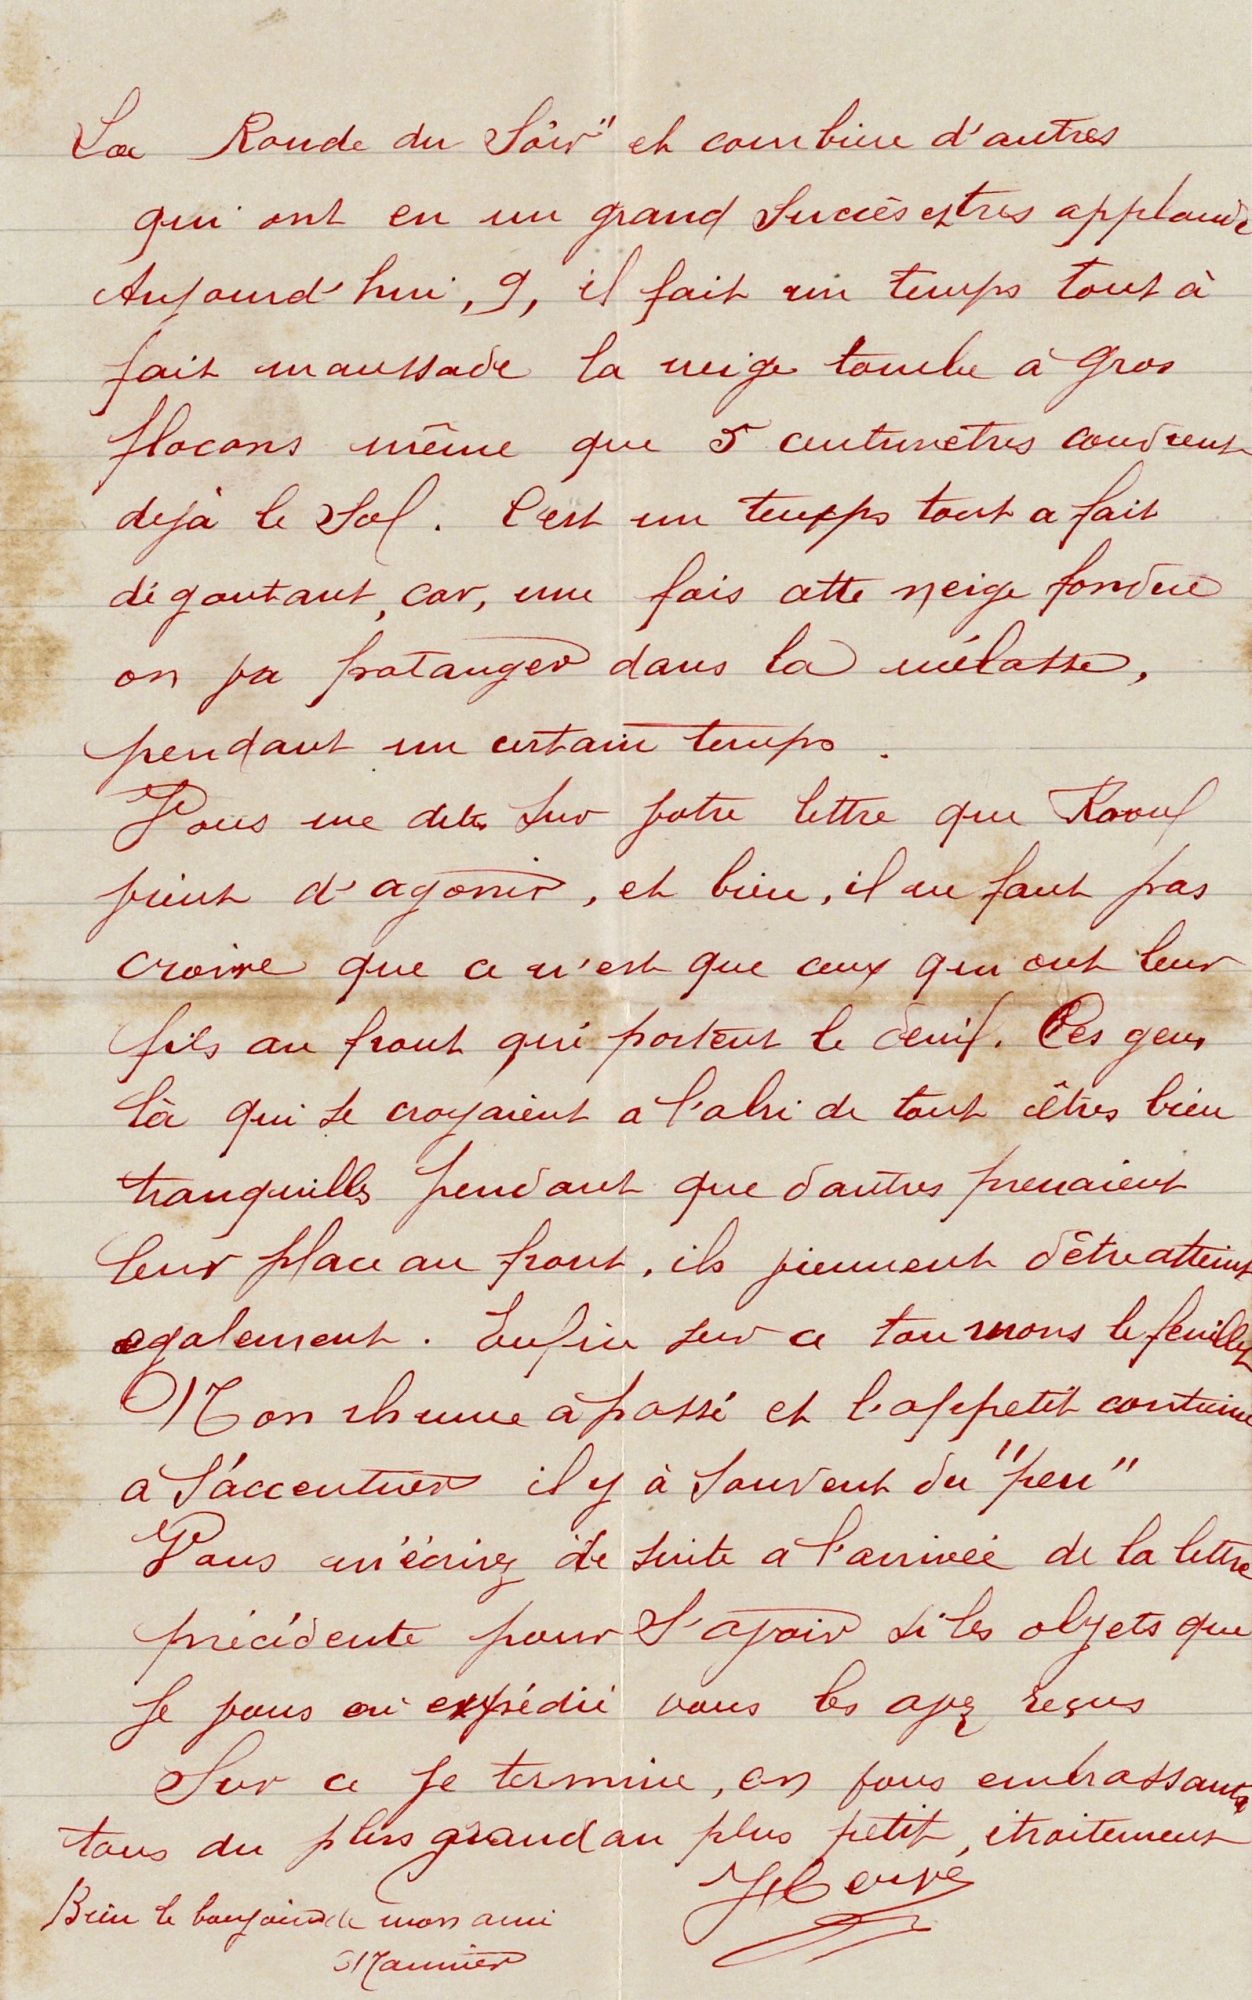 La Ronde du Soir" et combien d'autres
qui ont eu un grand succès et tres applaudi
Aujourd'hui, 9, il fait un temps tout à
fait maussade la neige tombe à gros
flocons même que 5 centimètres couvrent
dejà le sol. C'est un temps tout a fait
dégoutant, car, une fois cette neige fondue
on va patauger dans la mélasse,
pendant un certain temps.
Vous me dites sur votre lettre que Raoul
vient d'agonir, et bien, il ne faut pas
croire que ce n'est que ceux qui ont leur
fils au front qui portent le deuil. Ces gens
là qui se croyaient a l'abri de tout êtres bien
tranquilles pendant que dautres prenaient
leur place au front, ils viennent d'être atteint
egalement. Enfin sur ce tournons le feuillet
Mon rhume à passé et l'appetit continue
a s'accentuer il y à souvent du "peu"
Vous m'écrirez de suite a l'arrivée de la lettre
précédente pour s'avoir si les objets que
je vous ai expédié vous les avez reçus
Sur ce je termine, en vous embrassant
tous du plus grand au plus petit, étroitement
Bien le bonjour de mon ami
Maunier